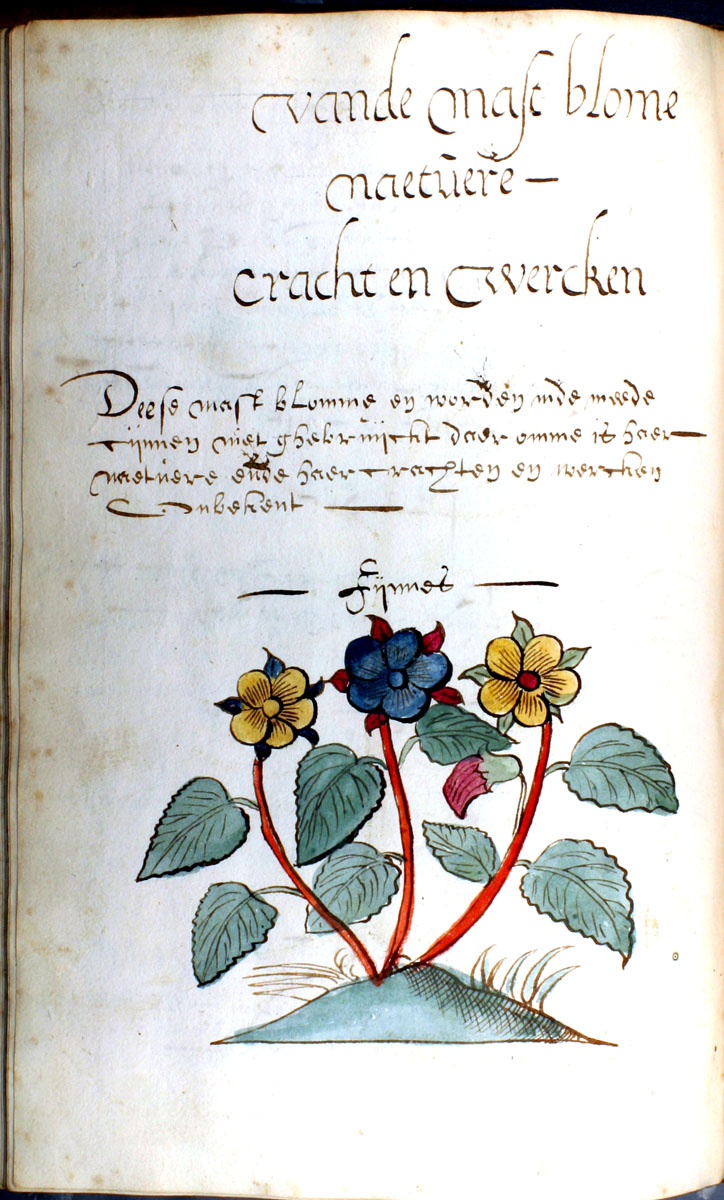 vande mast blome
naetuere —
cracht en wercken
Deese mast blomme en worden inde meede
cijnnen niet ghebruijckt daer omme is haer
naetuere ende haer crachten en wercken
onbekent —
— fijnnes —